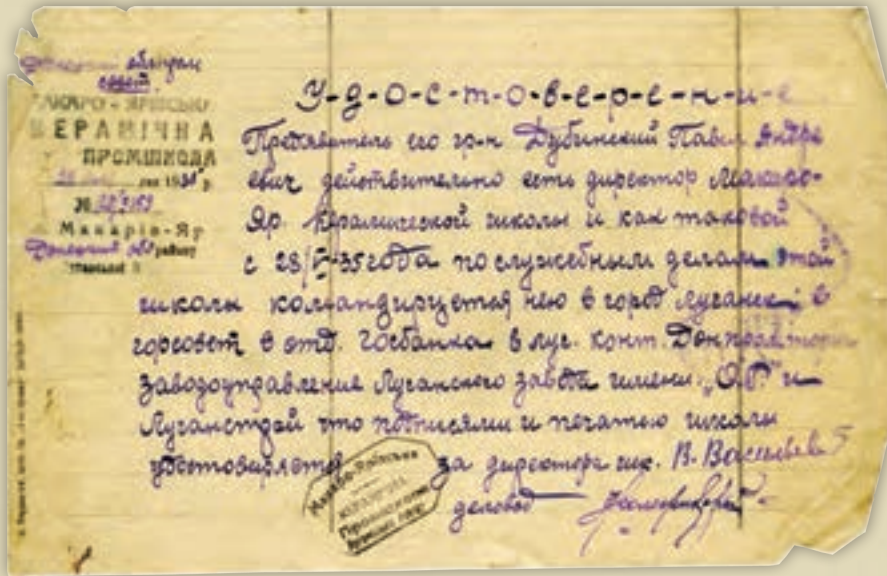 Донецкий облпром
совет.
МАКАРО-ЯРІВСЬКА
КЕРАМІЧНА
ПРОМШКОЛА
дня 1935 р.
№
Макарів-Яр
Донецкий обл району
У-д-о-с-т-о-в-е-р-е-н-и-е
Предявитель его гр-н Дубинский Павел Андре
евич действительно есть директор Макаро-
Яр. керамической школы и как таковой
с 28/ 35 года по служебным делам этой
школы командируется нею в город Луганск в
горсовет в отд. Госбанка в луг. конт.
Заводоуправление Луганского завода имени „О.Р.“ и
Луганстрой что подписями и печатью школы
удостоверяется
за директора шк. В. Васильев
деловод
Макаро-Яровська
КЕРАМІЧНА
Промшкола